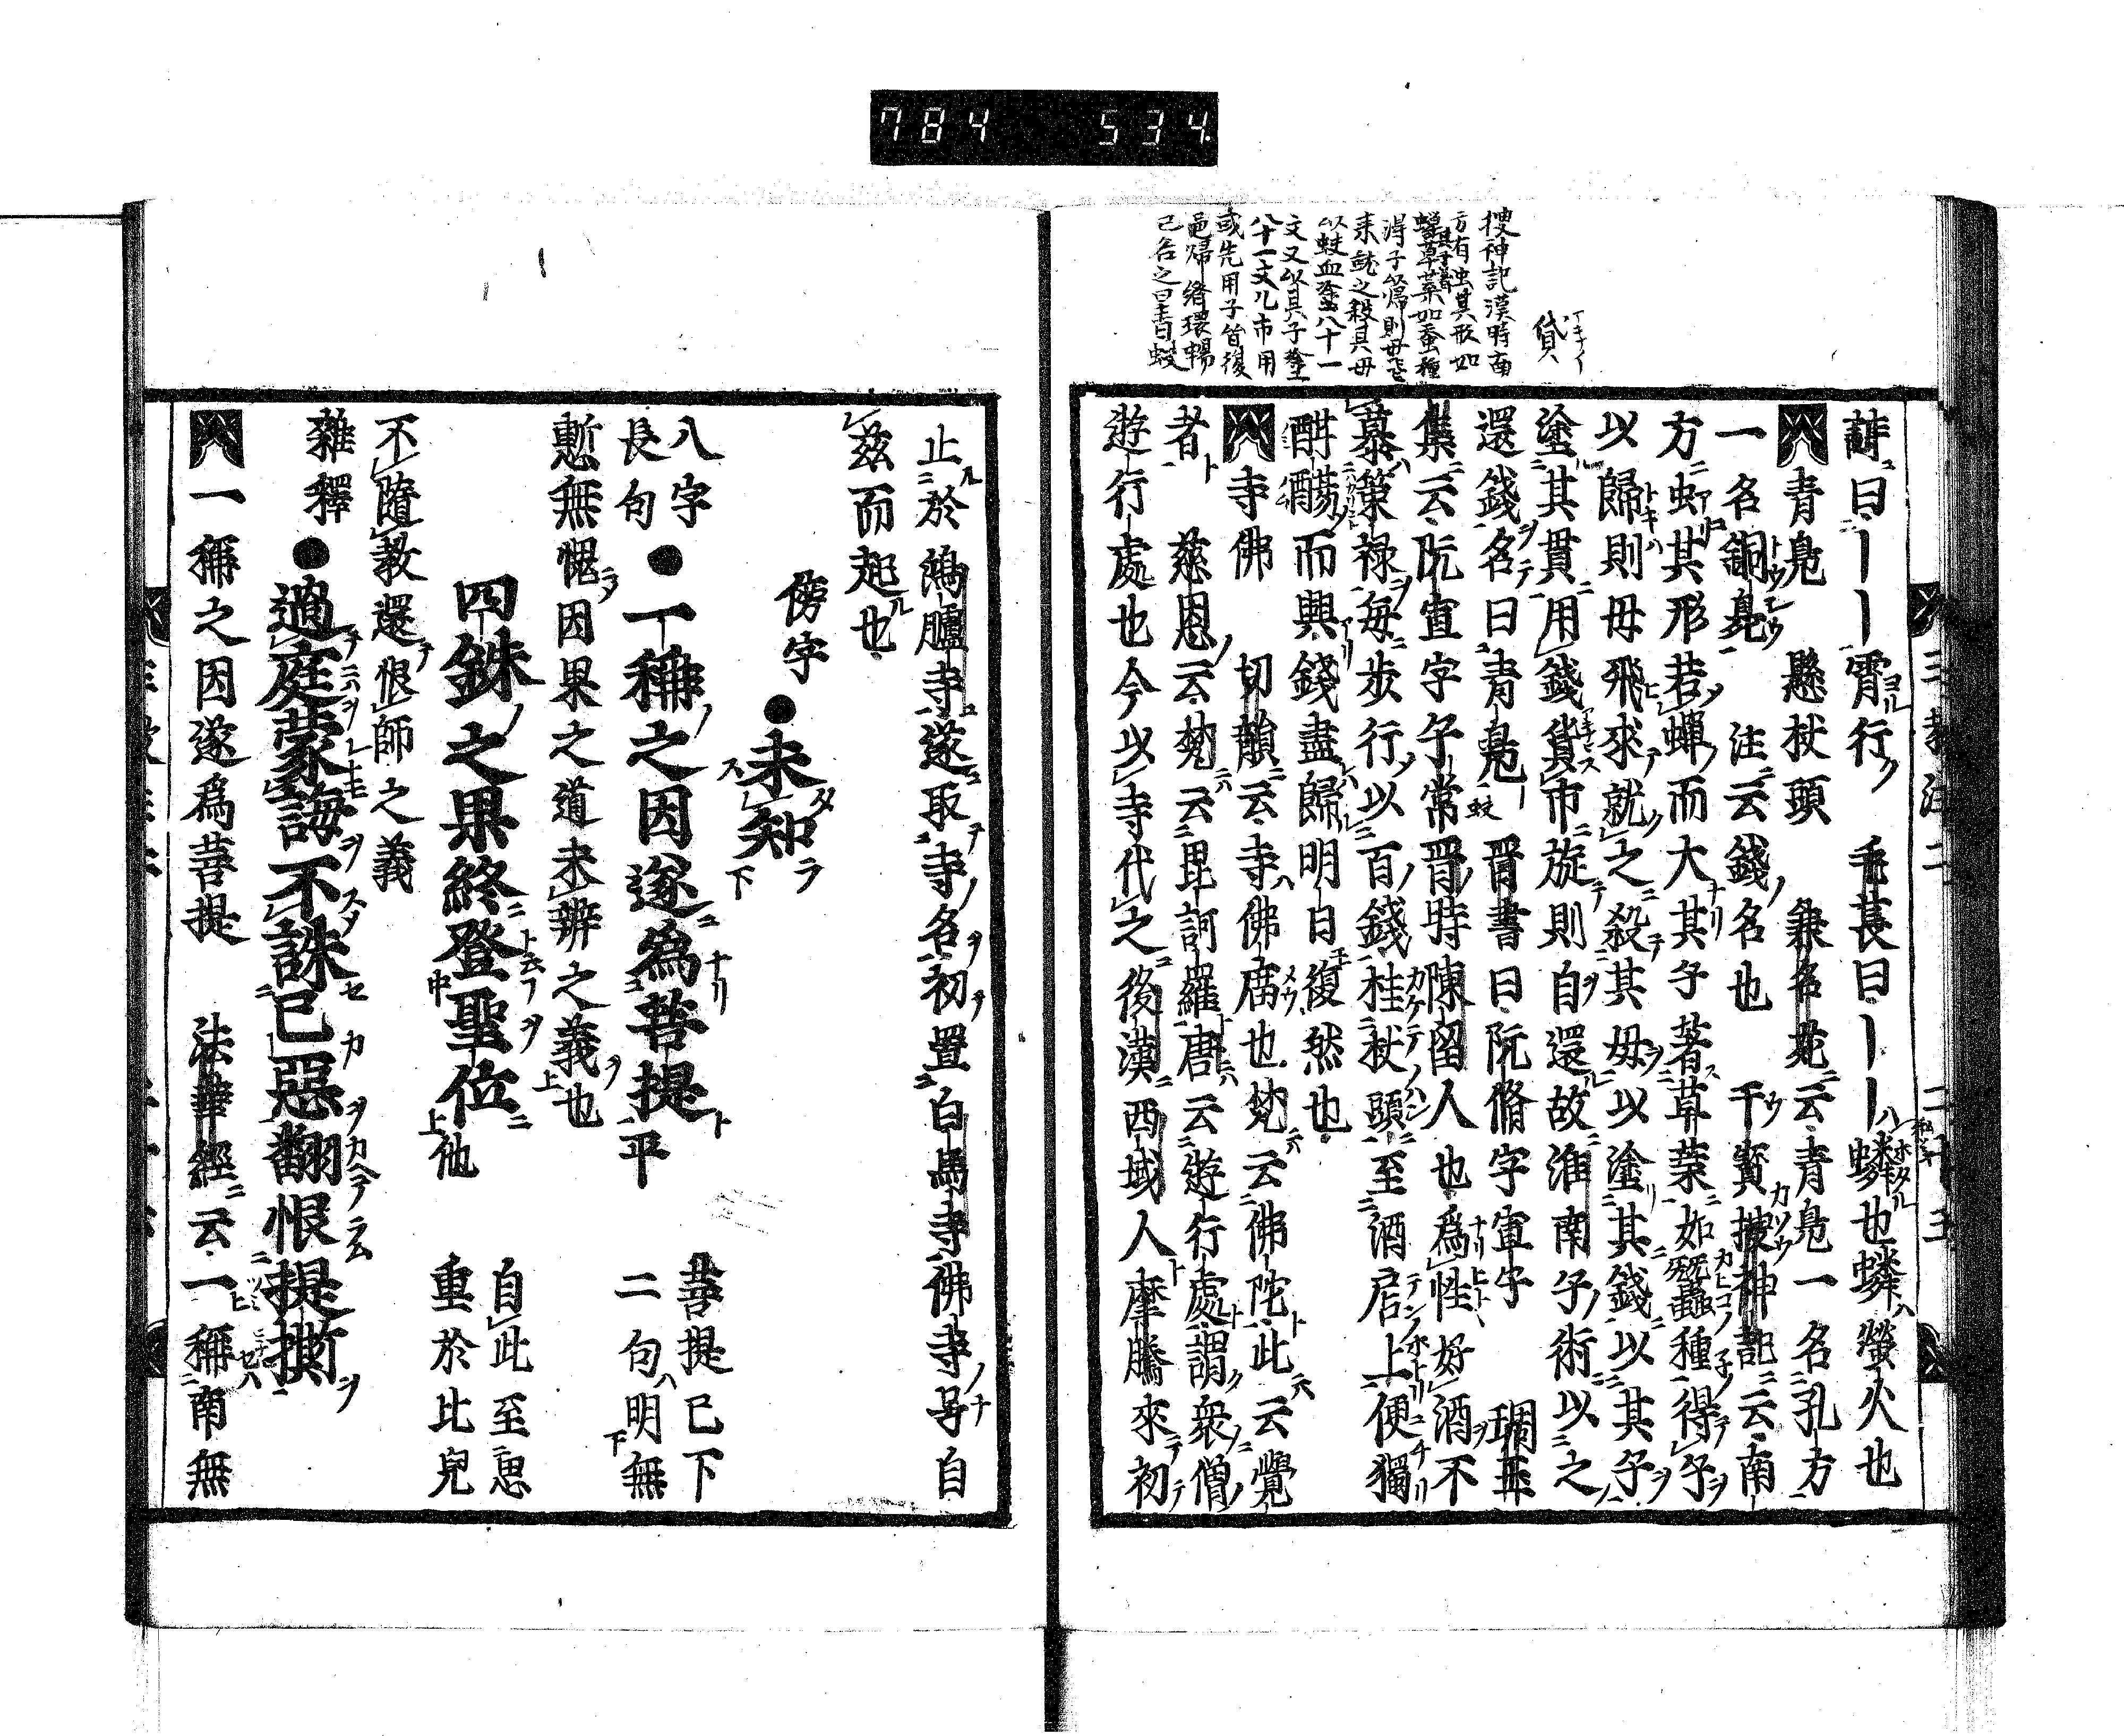 784 534
捜神記漢時南
方有虫其形如
蟬其子著
草葉如蚕種
得子㱕則母飛
来就之殺其母
以蚊血塗八十一
文又以其子塗
八十一文凡市用
或先用子皆復
已名之曰青蚨
貸
詩曰｜｜霄行 毛萇曰｜｜䗲也䗲螢火也
青鳧 懸杖頭 兼名苑云青鳧一名孔方
一名銅鳧 注云錢名也 干寳捜神記云南
方虫其形若蟬而大其子著草葉如蠶種得子
以歸則母飛來就之殺其母以塗其錢以其子
塗其貫用錢貨市旋則自還故淮南子術以之
還錢名曰青鳧 晋書曰阮脩字宣子
集云阮宣字子常晋時陳留人也爲性好酒不
慕榮祿每步行以百錢挂杖頭至酒店上便獨
酣暢而興錢盡歸明日復然也
寺佛 切韻云寺佛庿也梵云佛陀此云覺
者 慈恩云梵云毘訶羅唐云遊行處謂衆僧
遊行處也今以寺代之後漢西域人摩騰來初
三教注二 二十五
止於鴻臚寺遂取寺名初置白馬寺佛寺号自
茲而起也
傍字●未知
八字
長句●一稱之因遂爲菩提平 菩提已下
二句明無
慙無愧因果之道未辨之義也
四銖之果終登聖位他 自此至惠
重於比皃
不隨教還恨師之義
雜釋●過庭蒙誨不誅已惡翻恨提撕
一稱之因遂爲菩提 法華經云一稱南無